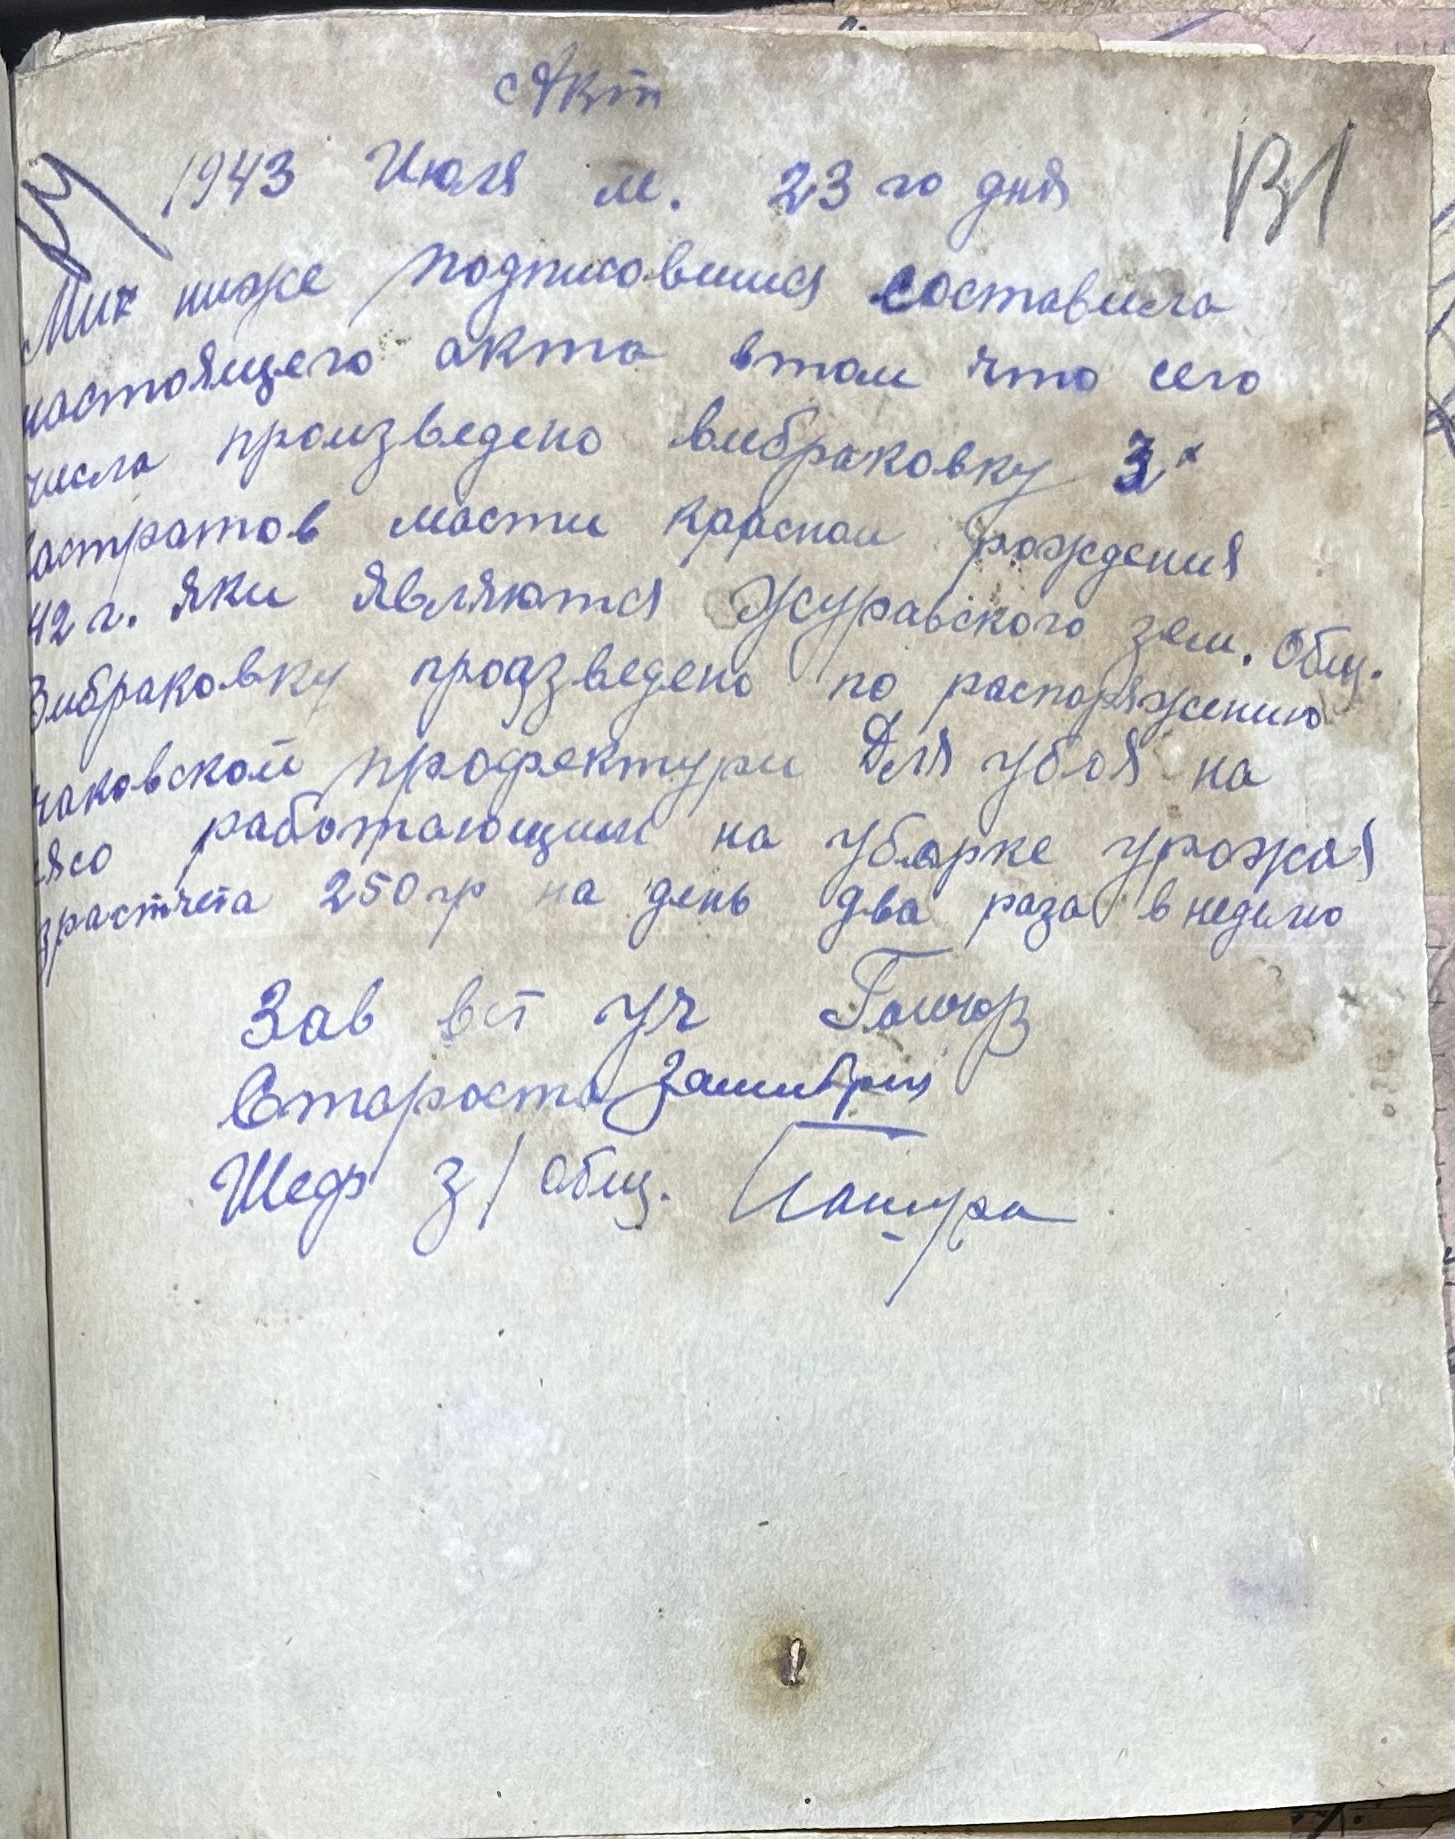 Акт
1943 Июля м. 23 го дня
ниже подписовшися составила
настоящего акта втом что сего
числа произведено вибраковку 3х
кастратов масти красной рождения
42 г. яки являются Журавского зем. Общ.
Вибраковку произведено по распоряжению
чаковской профектури Для убоя на
мясо работающим на уборке урожая
зрастчета 250 гр на день два раза в неделю
Зав вст уч
Староста
Шеф з/общ.